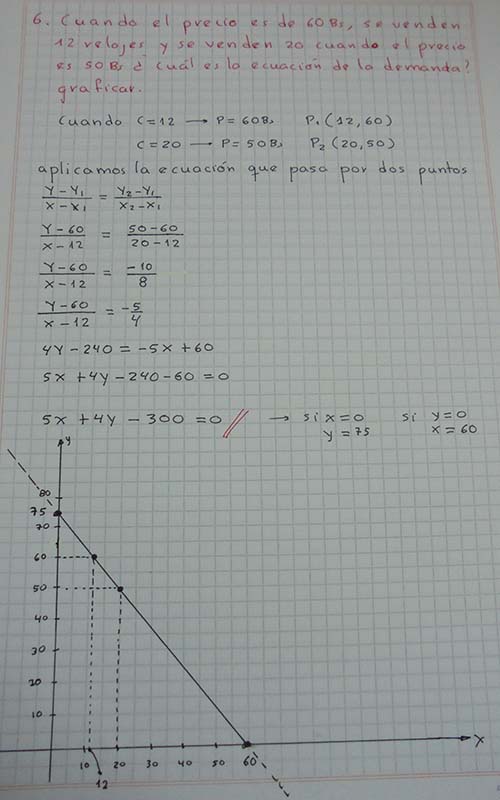 6. Cuando el precio es de 60Bs, se venden
12 relojes y se venden 20 cuando el precio
es 50Bs ¿ cuál es la ecuación de la demanda?
graficar.
Cuando C=12 → P=60Bs P₁(12,60)
C=20 → P=50Bs P₂(20,50)
aplicamos la ecuación que pasa por dos puntos
(Y-Y₁)/(X-X₁) = (Y₂-Y₁)/(X₂-X₁)
(Y-60)/(X-12) = (50-60)/(20-12)
(Y-60)/(X-12) = -10/8
(Y-60)/(X-12) = -5/4
4Y-240 = -5X+60
5X+4Y-240-60=0
5X+4Y-300=0 → si x=0 si y=0
y=75 x=60
y
80
75
70
60
50
40
30
20
10
10 20 30 40 50 60 X
12